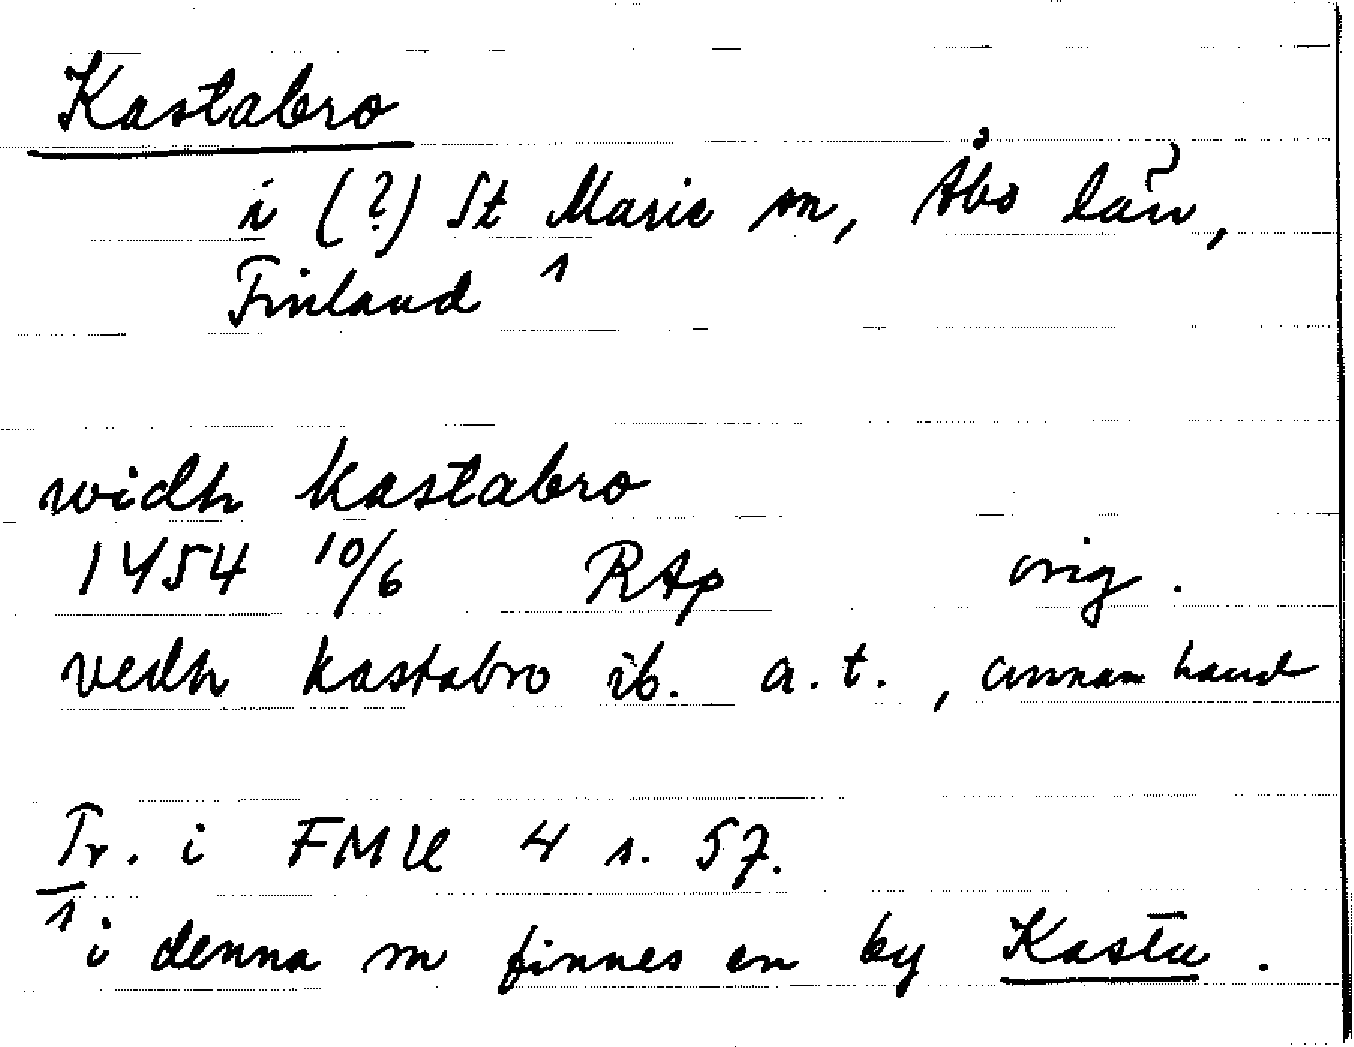 Kastabro
i (?) St Marie sn, Åbo län,
Finland 1
widh kastabro
1454 10/6 RAp orig.
vedh kastabro ib. a.t., annan hand
Tr. i FMU 4 s. 57.
1 i denna sn finnes en by Kastu.